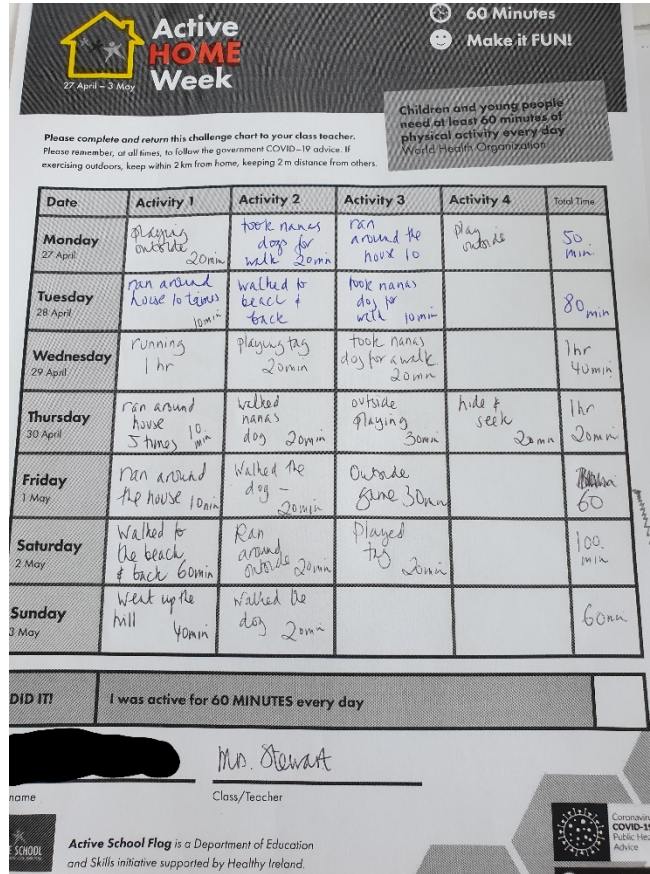 Active
HOME
Week
27 April – 3 May
60 Minutes
Make it FUN!
Children and young people
need at least 60 minutes of
physical activity every day
World Health Organization
Please complete and return this challenge chart to your class teacher.
Please remember, at all times, to follow the government COVID-19 advice. If
exercising outdoors, keep within 2 km from home, keeping 2 m distance from others.
Date Activity 1 Activity 2 Activity 3 Activity 4 Total Time
Monday
27 April
playing
outside
20min
took nanas
dogs for
walk 20min
ran
around the
house 10
play
outside
50
min
Tuesday
28 April
ran around
house 10 times
10min
walked to
beach &
back
took nanas
dog for
walk 10min
80 min
Wednesday
29 April
running
1 hr
playing tag
20min
took nanas
dog for a walk
20min
1hr
40min
Thursday
30 April
ran around
house
5 times 10
min
Walked
nanas
dog 20min
outside
playing
30min
hide &
seek
20min
1hr
20min
Friday
1 May
ran around
the house 10min
Walked the
dog –
20min
Outside
game 30min
60
Saturday
2 May
Walked to
the beach
& back 60min
Ran
around
outside 20min
Played
tag
20min
100
min
Sunday
3 May
Went up the
hill
40min
Walked the
dog 20min
60min
DID IT! I was active for 60 MINUTES every day
Mrs. Stewart
name Class/Teacher
E SCHOOL
Active School Flag is a Department of Education
and Skills initiative supported by Healthy Ireland.
Coronavirus
COVID-19
Public Hea
Advice